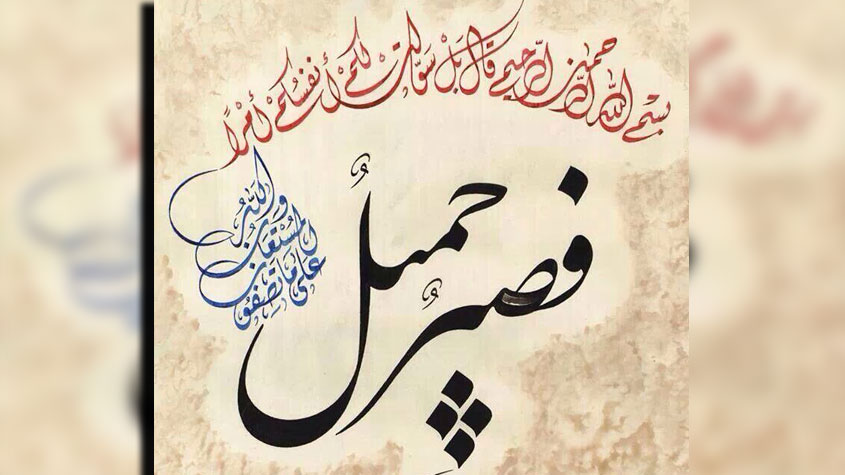 بسم الله الرحمن الرحيم قال بل سولت لكم أنفسكم أمرا
فصبر جميل
والله المستعان على ما تصفون